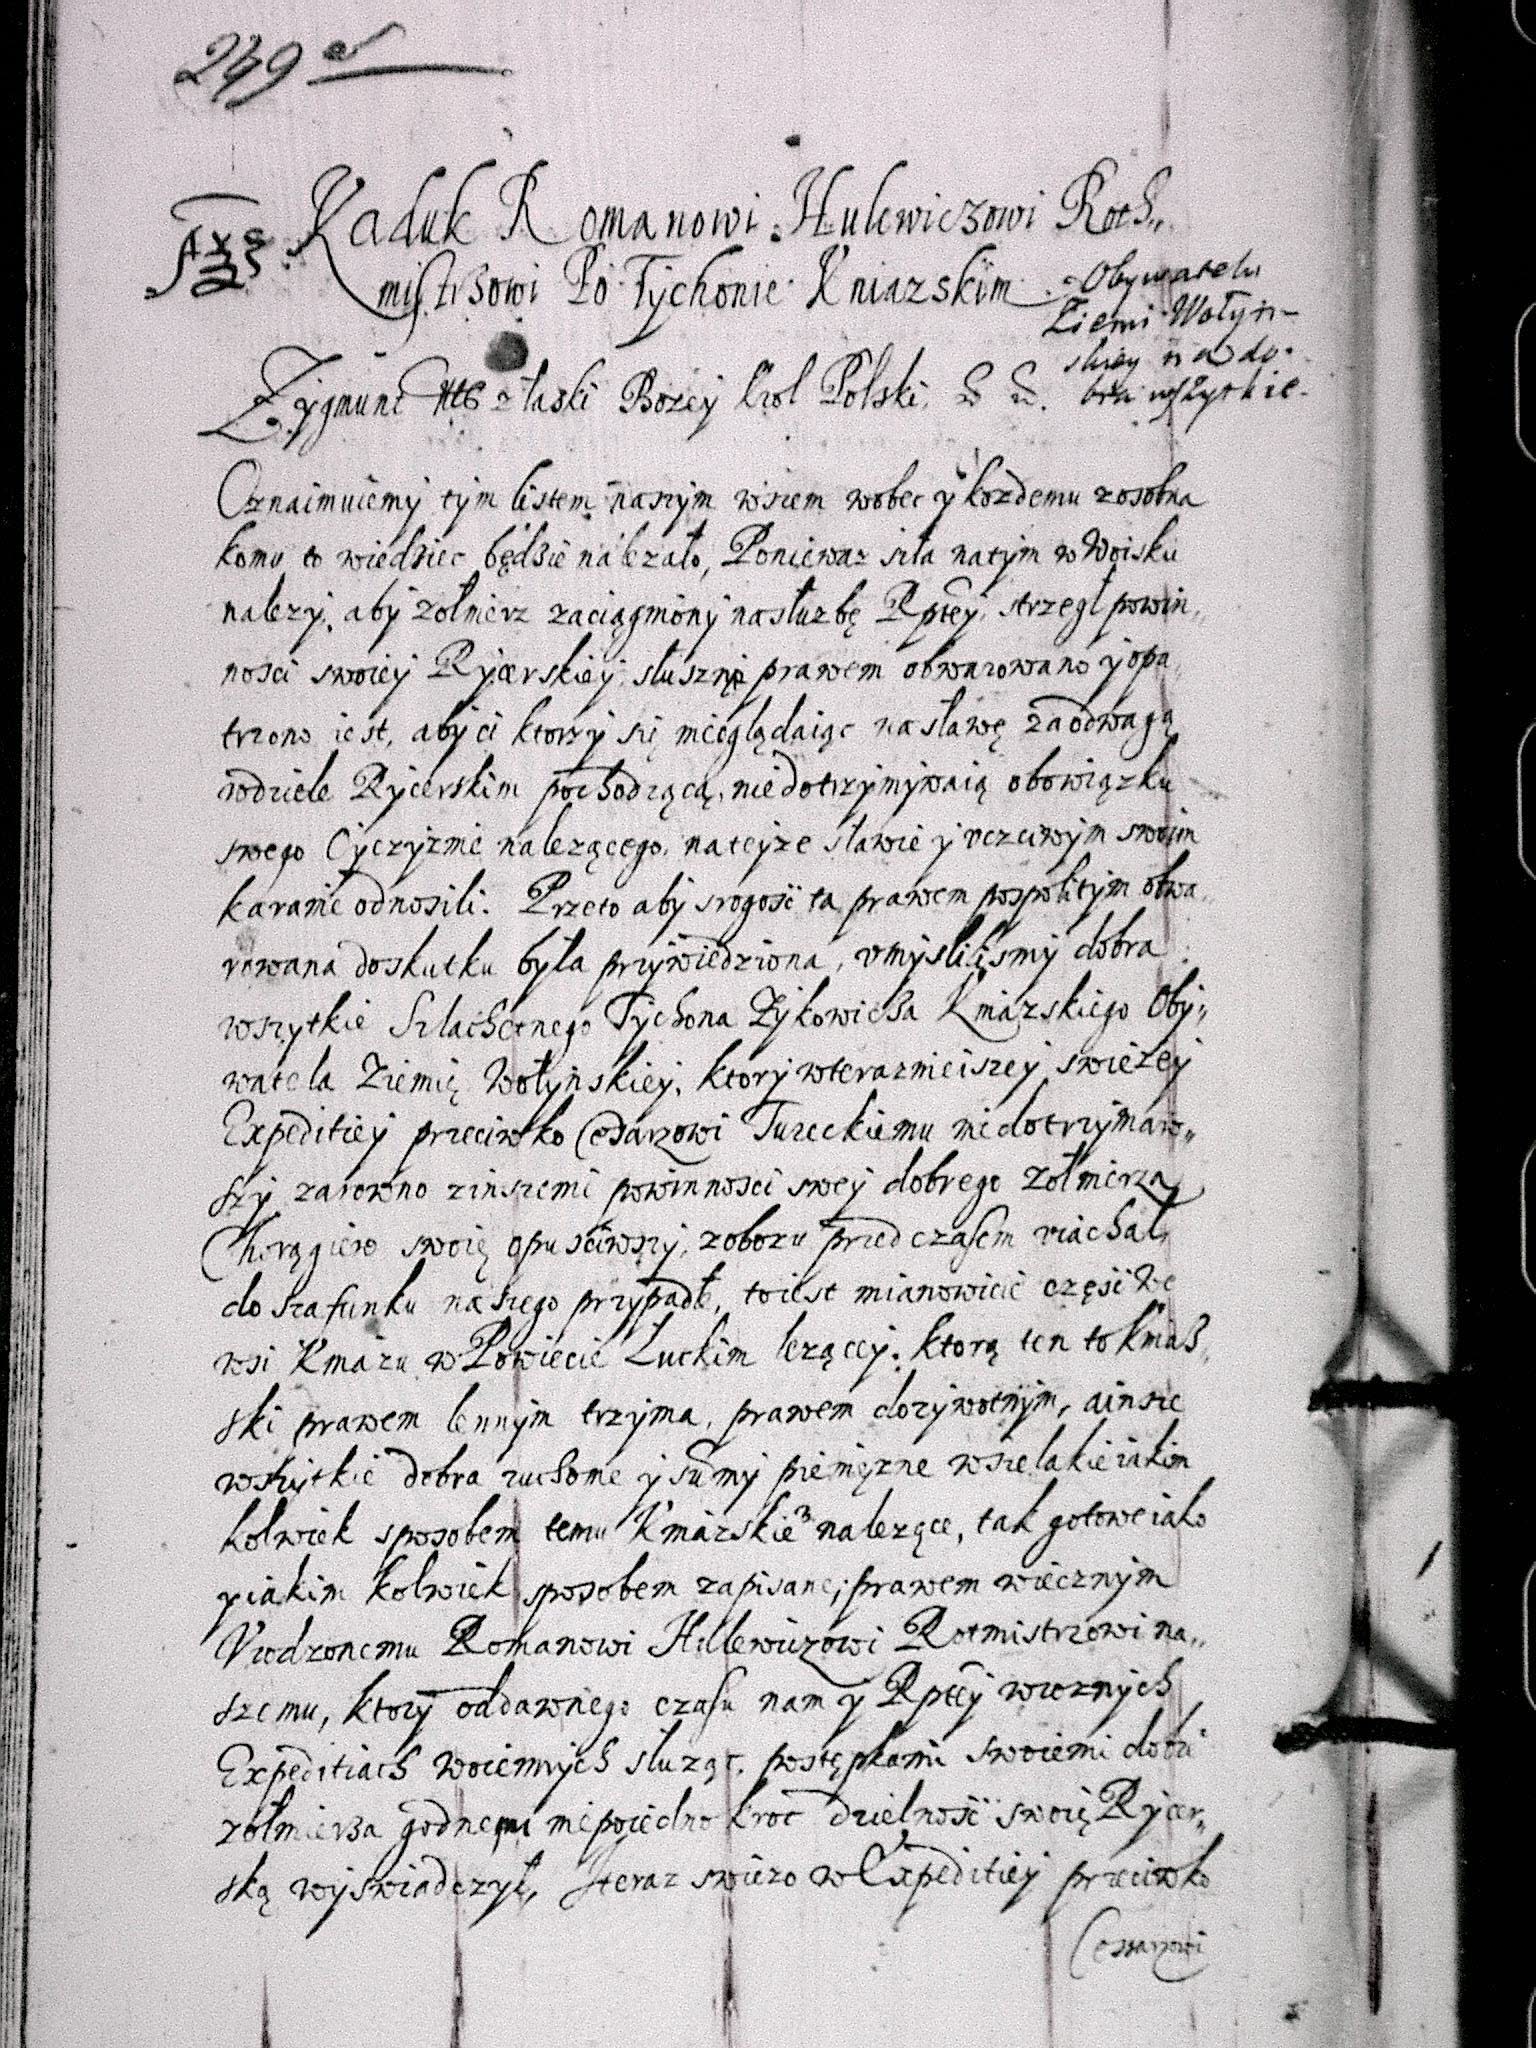 249
Kaduk Romanowi Hulewiczowi Roth„
mistrzowi Po Tychonie Kniazskim. Obywatelu
Ziemi Wołyn-
skiey na do-
bra wszytkie.
Zygmunt III z łaski Bozey Krol Polski. &c &c.
Oznaimuiemy tym listem naszym wszem wobec y kozdemu zosobna
komu to wiedziec będzie nalezało, Poniewaz siła natym w Woisku
nalezy, aby zołnierz zaciągniony nasłuzbę Rptey strzegł powin„
nosci swoiey Rycerskiey, słusznie prawem obwarowano y opa„
trzono iest, aby ci ktorzy się nieoglądaiąc na sławę za odwagą
wdziele Rycerskim pochodzącą, niedotrzymywaią obowiązku
swego Oyczyznie nalezącego, nateyze sławie y uczciwym swoim
karanie odnosili. Przeto aby srogość ta prawem pospolitym obwa„
rowana doskutku była przywiedziona, umyslilismy dobra
wszytkie Szlachetnego Tychona Zykowicza Kniazskiego Oby„
watela Ziemie Wołynskiey, ktory wteraznieiszey swiezey
Expeditiey przeciwko Cesarzowi Tureckiemu niedotrzymaw„
szy zarowno zinszemi powinnosci swey dobrego zołnierza
Chorągiew swoię opusciwszy, zobozu przed czasem uiachał,
do szafunku naszego przypadłe, toiest mianowicie część We
wsi Kniazu w Powiecie Łuckim lezącey, ktorą ten to Kniaz„
ski prawem lennym trzyma, prawem dozywotnym, ainsze
wszytkie dobra ruchome y sumy pienięzne wszelakie iakim
kolwiek sposobem temu Kniazskie° nalezące, tak gotowe iako
yiakim kolwiek sposobem zapisane, prawem wiecznym
Urodzonemu Romanowi Hulewiczowi Rotmistrzowi na„
szemu, ktory oddawnego czasu nam y Rptey wroznych
Expeditiach woiennych słuząc, postępkami swoiemi dobre°
zołnierza godnemi niepoiedno kroc dzielność swoię Rycer„
ską wyswiadczył, Iteraz swiezo w Expeditiey przeciwko
Cesarzowi